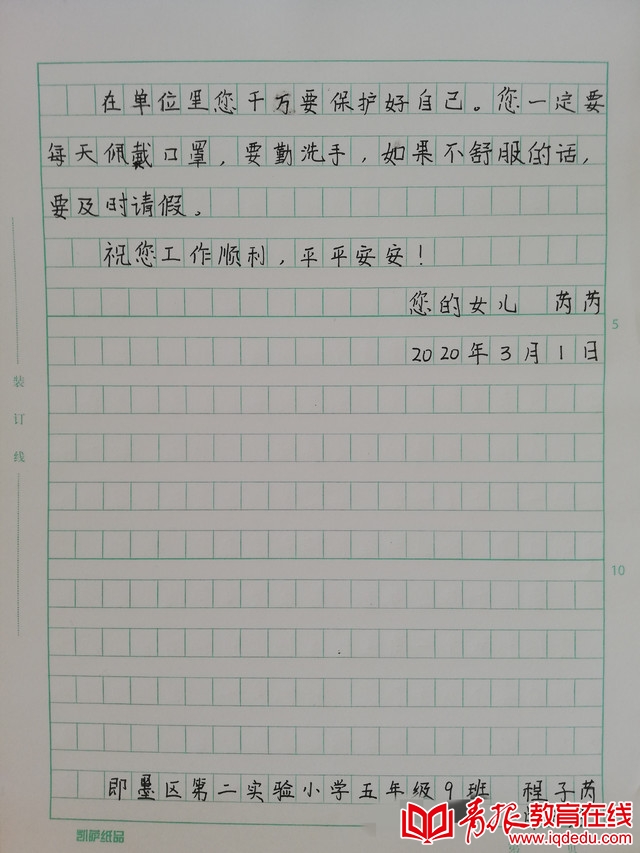 在单位里您千万要保护好自己。您一定要
每天佩戴口罩，要勤洗手，如果不舒服的话，
要及时请假。
祝您工作顺利，平平安安！
您的女儿 芮芮
5
2020年3月1日
装订线
10
即墨区第二实验小学五年级9班 程子芮
凯萨纸品
青报教育在线
www.iqdedu.com